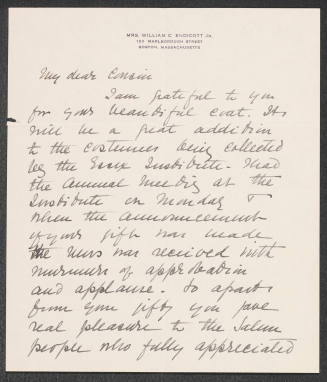 MRS. WILLIAM C. ENDICOTT JR.
163 MARLBOROUGH STREET
BOSTON, MASSACHUSETTS
My dear Cousin
I am grateful to you
for your beautiful coat. It
will be a great addition
to the costumes being collected
by the Essex Institute. I had
the annual meeting at the
Institute on Monday &
when the announcement
of your gift was made
the news was received with
murmurs of approbation
and applause. So apart
from your gift, you gave
real pleasure to the Salem
people who fully appreciated